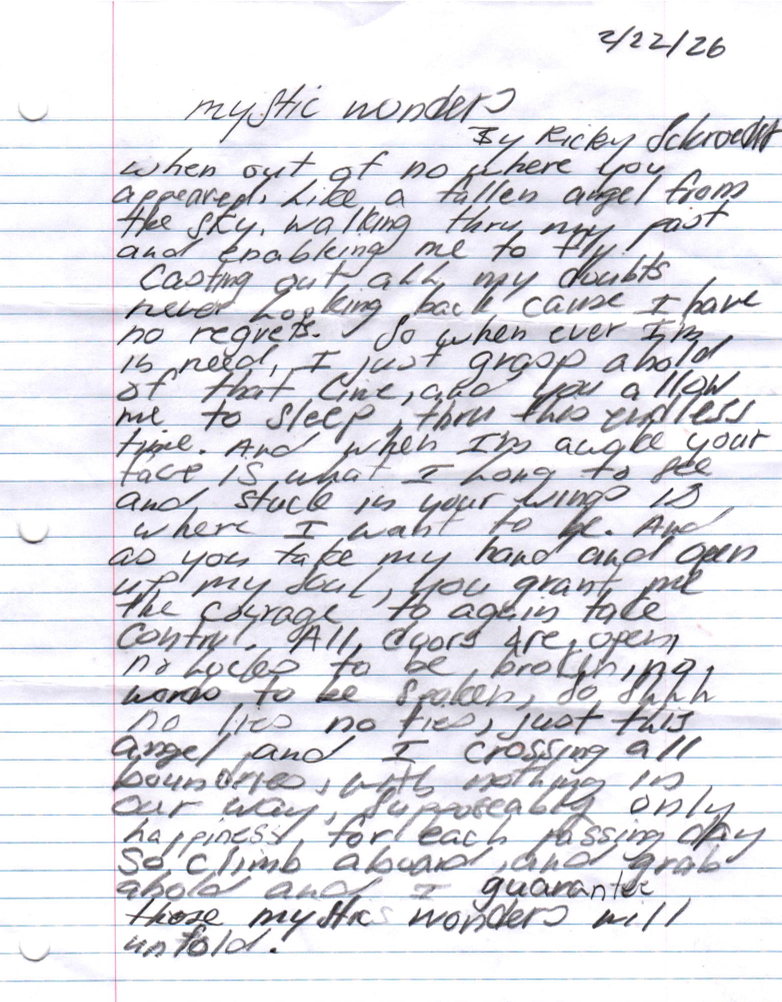 2/22/26
mystic wonders
By Ricky Schroeder
when out of no where you
appeared. Like a fallen angel from
the sky. walking thru my past
and enabling me to fly.
Casting out all my doubts
never looking back cause I have
no regrets. So when ever I'm
in need, I just grasp ahold
of that line, and you allow
me to sleep, thru this endless
time. And when I'm awake your
face is what I long to see
and stuck in your wings is
where I want to be. And
as you take my hand and open
up my soul, you grant me
the courage to again take
control. All doors are open,
no locks to be broken, no
words to be spoken, so shhh
no lies no ties, just this
angel and I crossing all
boundries, with nothing in
our way, supposeably only
happiness for each passing day
So climb aboard and grab
ahold and I guarantee
those mystics wonders will
unfold.